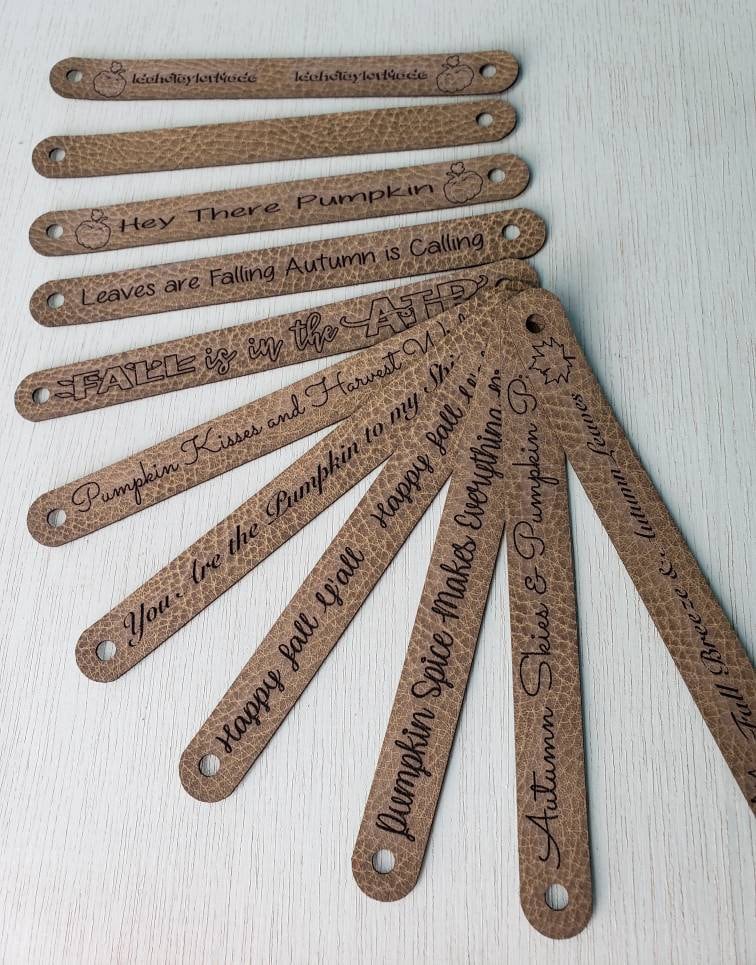 Hey There Pumpkin
Leaves are Falling Autumn is Calling
FALL is in the AIR
Pumpkin Kisses and Harvest
You Are the Pumpkin to my
Happy fall Y'all Happy fall
Pumpkin Spice Makes Everything
Autumn Skies & Pumpkin
Fall Breeze & Autumn Leaves